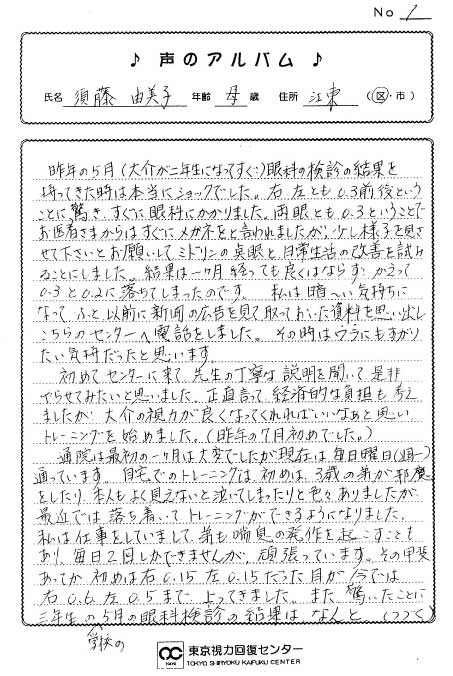 No 1
♪ 声のアルバム ♪
氏名 須藤 由美子 年齢 母 歳 住所 江東 (区・市)
昨年の5月(大介が二年生になってすぐ)眼科の検診の結果を
持ってきた時は本当にショックでした。右、左とも0.3前後という
ことに驚き、すぐに眼科にかかりました。両眼とも0.3ということで
お医者さまからはすぐにメガネをと言われましたが、少し様子を見させ
て下さいとお願いしてミドリンの点眼と日常生活の改善を試み
ることにしました。結果は一ヶ月経っても良くはならず かえって
0.3と0.2に落ちてしまったのです。 私は暗〜い気持ちに
なって、ふと以前に新聞の広告を見て取っておいた資料を思い出し
こちらのセンターへ電話をしました。その時はワラにもすがり
たい気持だったと思います。
初めてセンターに来て、先生の丁寧な説明を聞いて是非
やらせてみたいと思いました。正直言って経済的な負担も考え
ましたが 大介の視力が良くなってくれればいいなあと思い
トレーニングを始めました。(昨年の7月初めでした。)
通院は最初の一ヶ月は大変でしたが現在は毎日曜日(週一)
通っています。自宅でのトレーニングは、初めは、3歳の弟が邪魔
をしたり、本人もよく見えないと泣いてしまったりと色々ありましたが
最近では落ち着いてトレーニングができるようになりました。
私は仕事をしていまして、弟も喘息の発作を起こすことも
あり、毎日2回しかできませんが、頑張っています。その甲斐
あってか 初めは右0.15 左0.15だった目が今では
右0.6 左0.5まで上ってきました。また、驚いたことに
三年生の5月の学校の眼科検診の結果は、なんと (つづく)
東京視力回復センター
TOKYO SHIRYOKU KAIFUKU CENTER
TOKYO